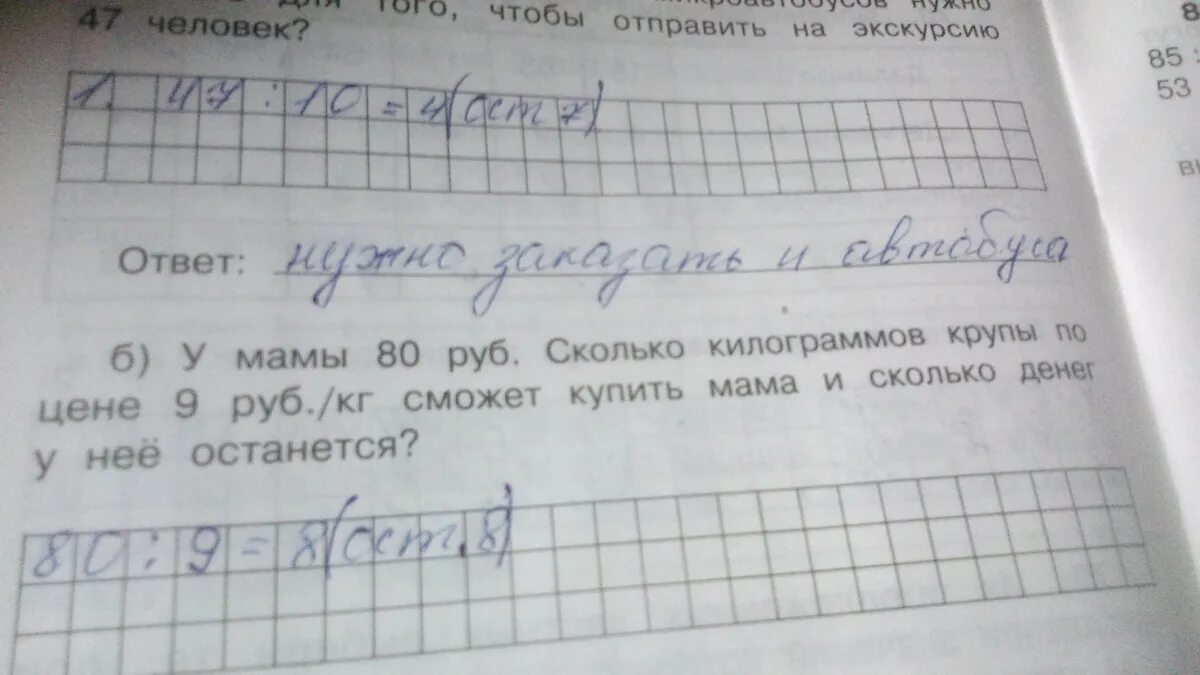 для того, чтобы отправить на экскурсию
47 человек?
1. 47 : 10 = 4 (ост 7)
Ответ: нужно заказать 4 автобуса
б) У мамы 80 руб. Сколько килограммов крупы по
цене 9 руб./кг сможет купить мама и сколько денег
у неё останется?
80 : 9 = 8 (ост. 8)
8
85 :
53